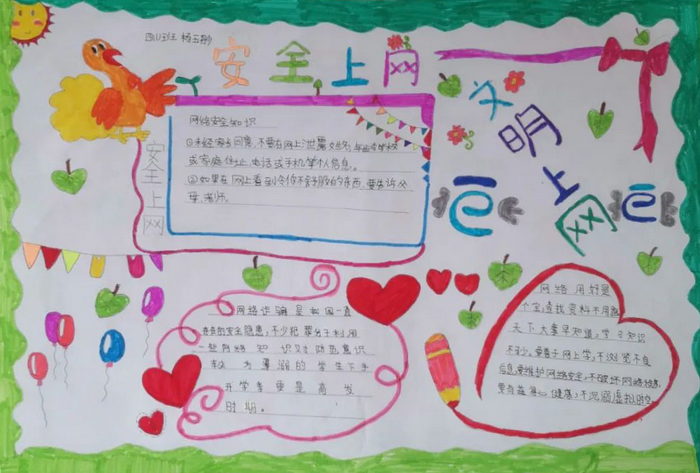 四(1)班 杨
安全上网
文明上网
安全上网
网络安全知识
①未经家长同意,不要在网上泄露姓名,年龄学校
或家庭住址、电话或手机学个人信息。
②如果在网上看到令你不舒服的东西,要告诉父
母、老师。
网络诈骗是我国一直
存在的安全隐患,不少犯罪分子利用
一些网络知识又防范意识
较为薄弱的学生下手
开学季更是高发
时期。
网络用好是
个宝,查找资料不用跑
天下大事早知道,学习知识
不少。要善于网上学,不浏览不良
信息。要维护网络安全,不破坏网络秩序。
要有益身心健康,不沉溺虚拟时空